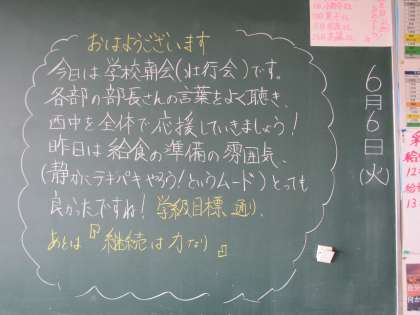 おはようございます
今日は学校朝会(壮行会)です。
各部の部長さんの言葉をよく聴き、
西中を全体で応援していきましょう!
昨日は給食の準備の雰囲気、
(静かにテキパキやろう!というムード)とっても
良かったですね!学級目標通り、
あとは『継続は力なり』
6月6日(火)